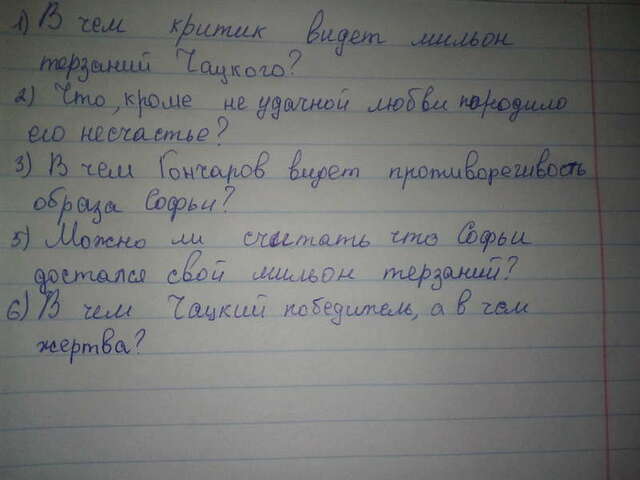 1) В чем критик видет мильон
терзаний Чацкого?
2) Что, кроме не удачной любви породило
его несчастье?
3) В чем Гончаров видет противоречивость
образа Софьи?
5) Можно ли считать что Софьи
достался свой мильон терзаний?
6) В чем Чацкий победитель, а в чем
жертва?